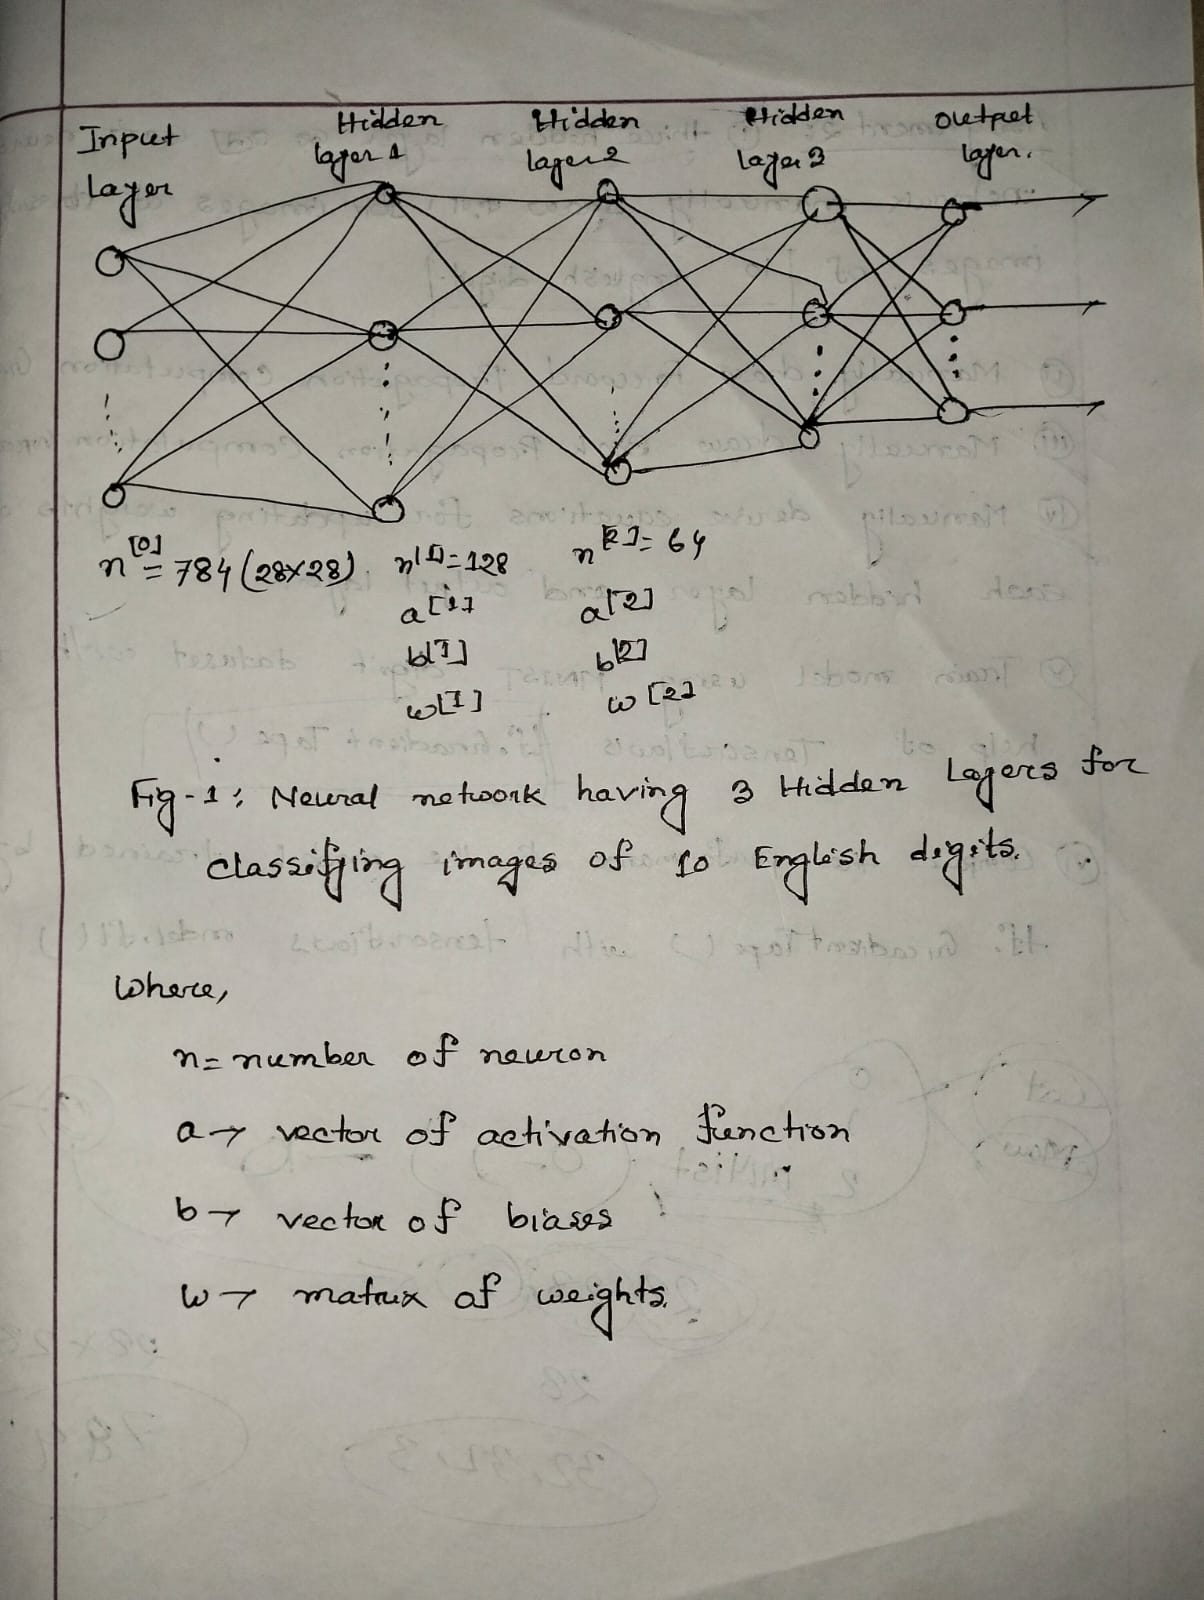 Input layer
Hidden layer 1
Hidden layer 2
Hidden layer 3
output layer.
n[0] = 784 (28×28)
n[1] = 128
n[2] = 64
a[1]
a[2]
b[1]
b[2]
w[1]
w[2]
Fig-1: Neural network having 3 Hidden Layers for
classifying images of 10 English digits.
Where,
n = number of neuron
a → vector of activation function
b → vector of biases
w → matrix of weights.